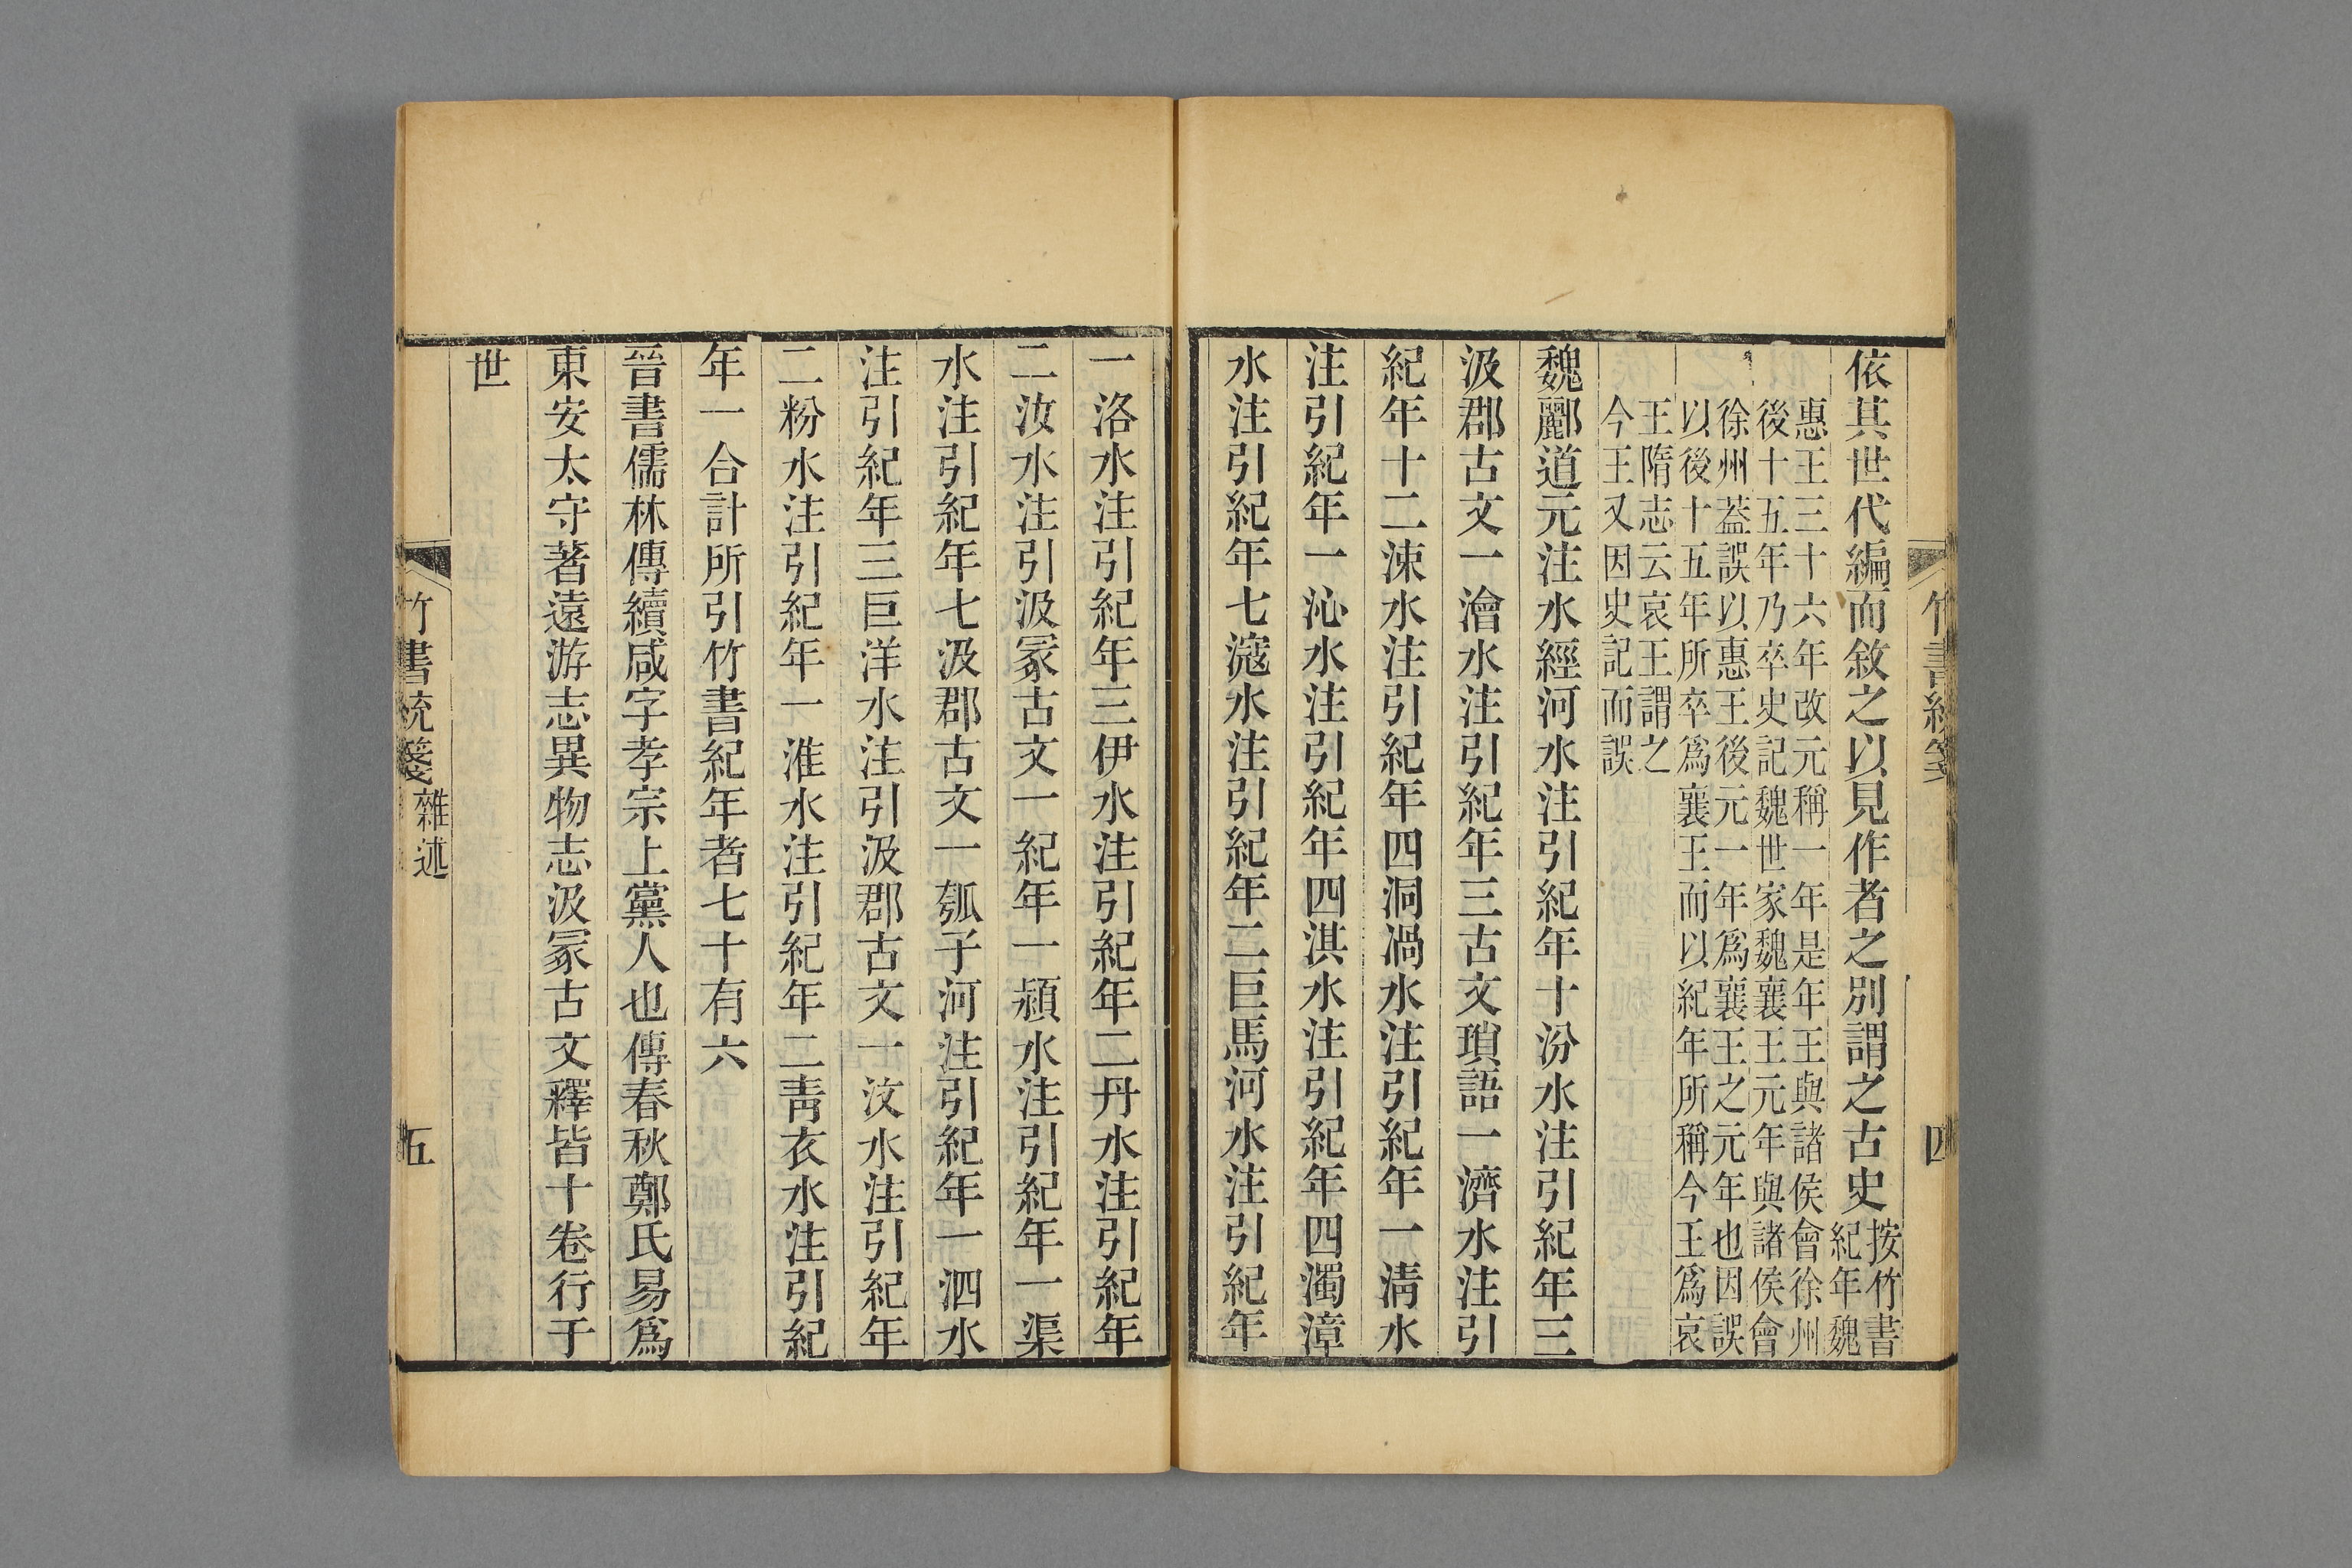 竹書統箋
四
依其世代編而敘之以見作者之別謂之古史按竹書
紀年魏
惠王三十六年改元稱一年是年王與諸侯會徐州
後十五年乃卒史記魏世家魏襄王元年與諸侯會
徐州蓋誤以惠王後元一年爲襄王之元年也因誤
以後十五年所卒爲襄王而以紀年所稱今王爲哀
王隋志云哀王謂之
今王又因史記而誤
魏酈道元注水經河水注引紀年十汾水注引紀年三
汲郡古文一澮水注引紀年三古文瑣語一濟水注引
紀年十二涑水注引紀年四洞渦水注引紀年一淸水
注引紀年一沁水注引紀年四淇水注引紀年四濁漳
水注引紀年七滱水注引紀年二巨馬河水注引紀年
一洛水注引紀年三伊水注引紀年二丹水注引紀年
二汝水注引汲冢古文一紀年一潁水注引紀年一渠
水注引紀年七汲郡古文一瓠子河注引紀年一泗水
注引紀年三巨洋水注引汲郡古文一汶水注引紀年
二粉水注引紀年一淮水注引紀年二靑衣水注引紀
年一合計所引竹書紀年者七十有六
晉書儒林傳續咸字孝宗上黨人也傳春秋鄭氏易爲
東安太守著遠游志異物志汲冢古文釋皆十卷行于
世
竹書統箋
雜述
五